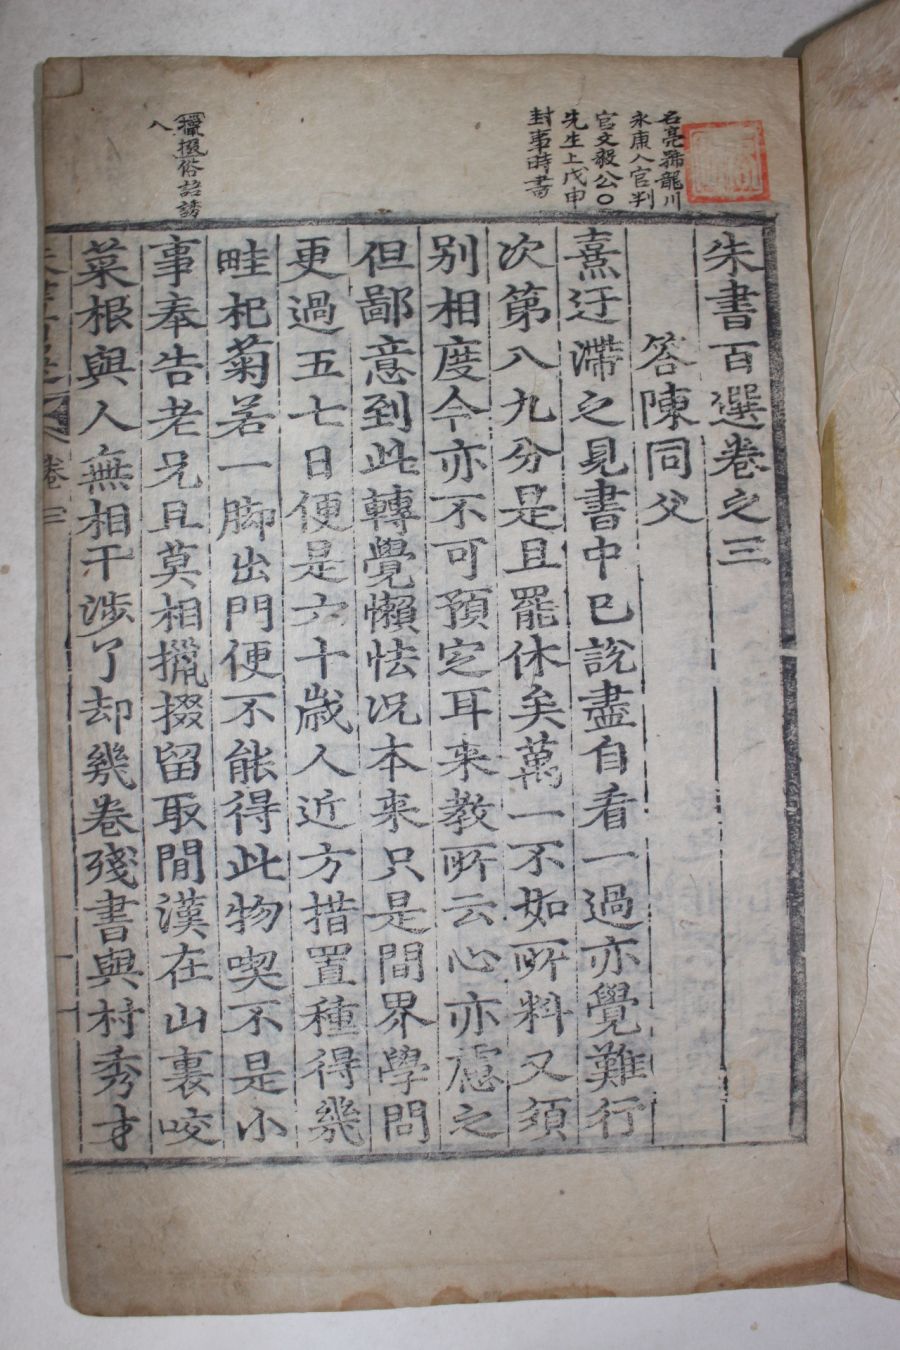 名亮號龍川
永康人官判
官文毅公○
先生上戊申
封事時書
擸掇俗諂誘
人
朱書百選卷之三
答陳同父
熹迂滯之見書中已說盡自看一過亦覺難行
次第八九分是且罷休矣萬一不如所料又須
別相度今亦不可預定耳来教所云心亦慮之
但鄙意到此轉覺懶怯况本来只是間界學問
更過五七日便是六十歲人近方措置種得幾
畦杞菊若一脚出門便不能得此物喫不是小
事奉告老兄且莫相擸掇留取閒漢在山裏咬
菜根與人無相干涉了却幾卷殘書與村秀才
卷三